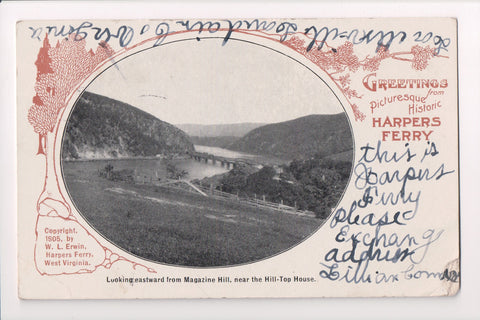 Greetings
from
Picturesque
Historic
HARPERS
FERRY
this is
Harpers
Ferry
please
Exchang
address
Lillian
Copyright,
1905, by
W. L. Erwin,
Harpers Ferry,
West Virginia.
Looking eastward from Magazine Hill, near the Hill-Top House.